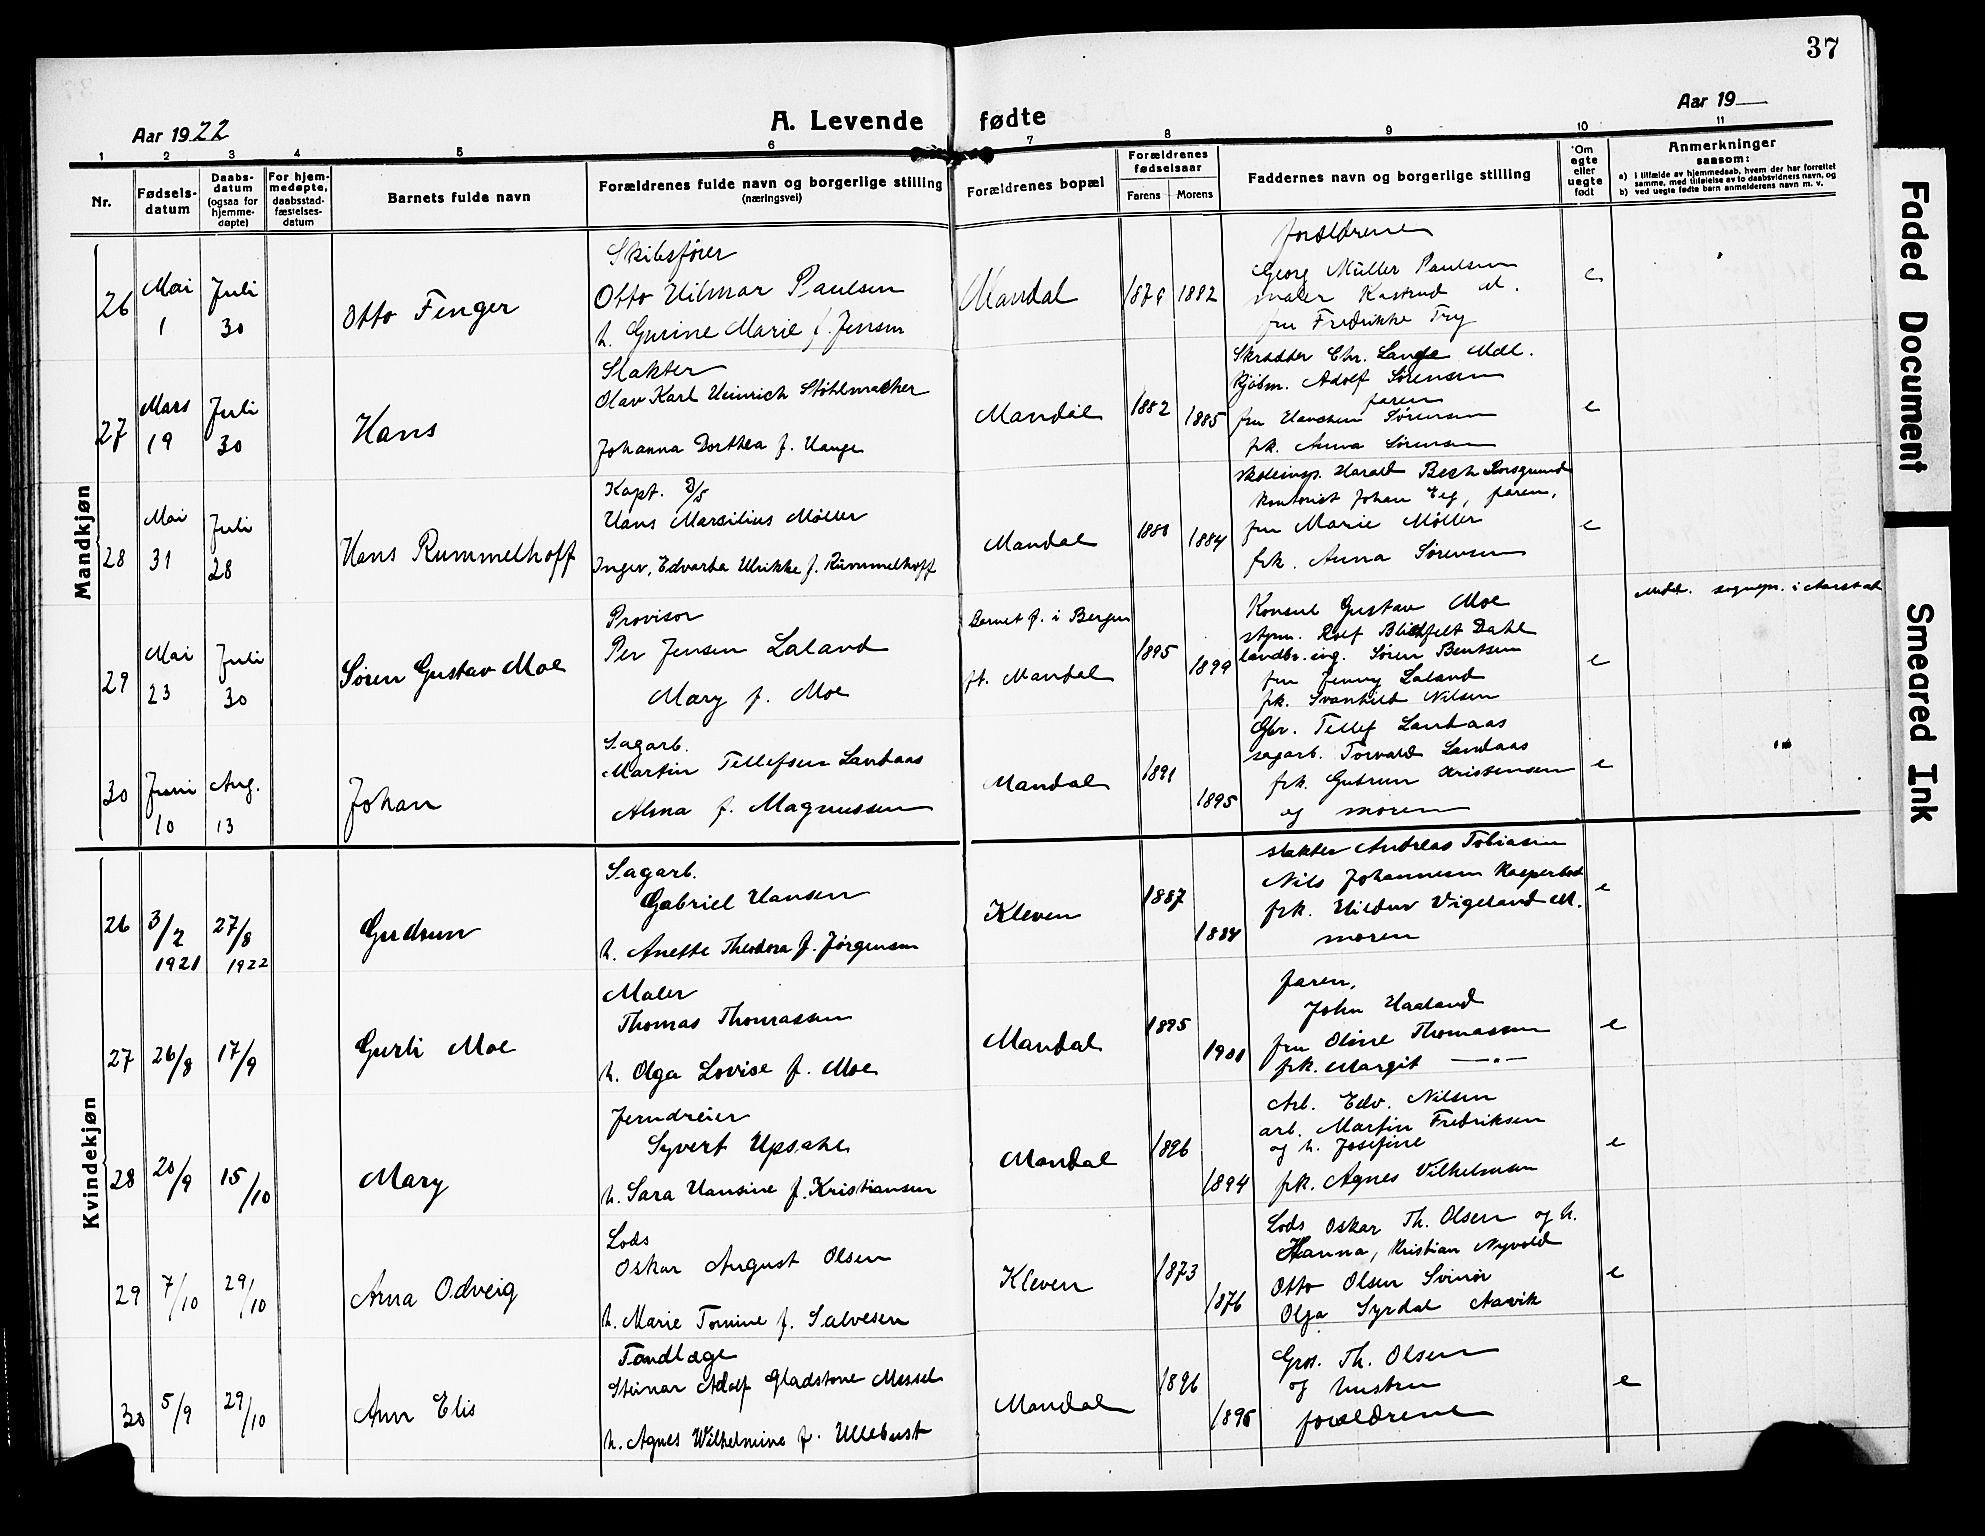 37
Aar 1922
A. Levende fødte
Aar 19
1 2 3 4 5 6 7 8 9 10 11
Nr.
Fødselsdatum
Daabsdatum (ogsaa for hjemmedøpte)
For hjemmedøpte, daabsstadfæstelsesdatum
Barnets fulde navn
Forældrenes fulde navn og borgerlige stilling (næringsvei)
Forældrenes bopæl
Forældrenes fødselsaar
Farens Morens
Faddernes navn og borgerlige stilling
Om egte eller uegte født
Anmerkninger
saasom:
a) i tilfælde av hjemmedaab, hvem der har forrettet samme, med tilføielse av to daabsvidners navn, og
b) ved uegte fødte barn anmelderens navn m. v.
Mandkjøn
26 Mai 1 Juli 30 Otto Fenger
Skibsfører
Otto Hilmar Paulsen
h. Gurine Marie f. Jensen
Mandal 1879 1882
forældrene
Georg Müller Paulsen
maler Kastrud M.
fru Fredrikke Try
e
27 Mars 19 Juli 30 Hans
Slakter
Olav Karl Heinrich Støhlmacher
Johanna Dorthea f. Hange
Mandal 1882 1885
Skrædder Chr. Lange Mdl.
kjøbm. Adolf Sørensen
faren
fru Hanchen Sørensen
frk. Anna Sørensen
e
28 Mai 31 Juli 28 Hans Rummelhoff
Kapt. D/S
Hans Marsilius Møller
Inger, Edvarda Ulrikke f. Rummelhoff
Mandal 1880 1884
skoleinsp. Harald Bech Porsgrund
kontorist Johan Eeg, faren,
fru Marie Møller
frk. Anna Sørensen
e
29 Mai 23 Juli 30 Søren Gustav Moe
Provisor
Per Jensen Laland
Mary f. Moe
Barnet f. i Bergen
ft. Mandal 1895 1899
Konsul Gustav Moe
styrm. Rolf Blichfelt Dahl
landbr. ing. Søren Bentsen
fru Jenny Laland
frk. Svanhild Nilsen
e
Medd. sognepr. i Aarstad
30 Juni 10 Aug. 13 Johan
Sagarb.
Martin Tellefsen Landaas
Alma f. Magnussen
Mandal 1891 1895
Gbr. Tellef Landaas
sagarb. Torvald Landaas
frk. Gudrun Kristensen
og moren
e
Kvindekjøn
26 3/2 1921 27/8 1922 Gudrun
Sagarb.
Gabriel Hansen
h. Anette Theodora f. Jørgensen
Kleven 1887 1884
slakter Andreas Tobiasen
Nils Johannesen
frk. Hildur Vigeland M.
moren
e
27 26/8 17/9 Gurli Moe
Maler
Thomas Thomassen
h. Olga Lovise f. Moe
Mandal 1895 1901
faren,
John Haaland
fru Oline Thomassen
frk. Margit —"—
e
28 20/9 15/10 Mary
Jerndreier
Syvert Upsahl
h. Sara Hansine f. Kristiansen
Mandal 1896 1894
Arb. Edv. Nilsen
arb. Martin Fredriksen
og h. Josefine
frk. Agnes Vilhelmsen
e
29 7/10 29/10 Arna Odveig
Lods
Oskar August Olsen
h. Marie Tomine f. Salvesen
Kleven 1873 1876
Lods Oskar Th. Olsen og h.
Hanna, Kristian Nyvold
Otto Olsen Svinør
Olga Syrdal Aavik
e
30 5/9 29/10 Ann Elis
Tandlæge
Steinar Adolf Gladstone Messel
h. Agnes Wilhelmine f. Ullebust
Mandal 1896 1896
Gros. Th. Olsen
og hustru
forældrene
e
Faded Document
Smeared Ink